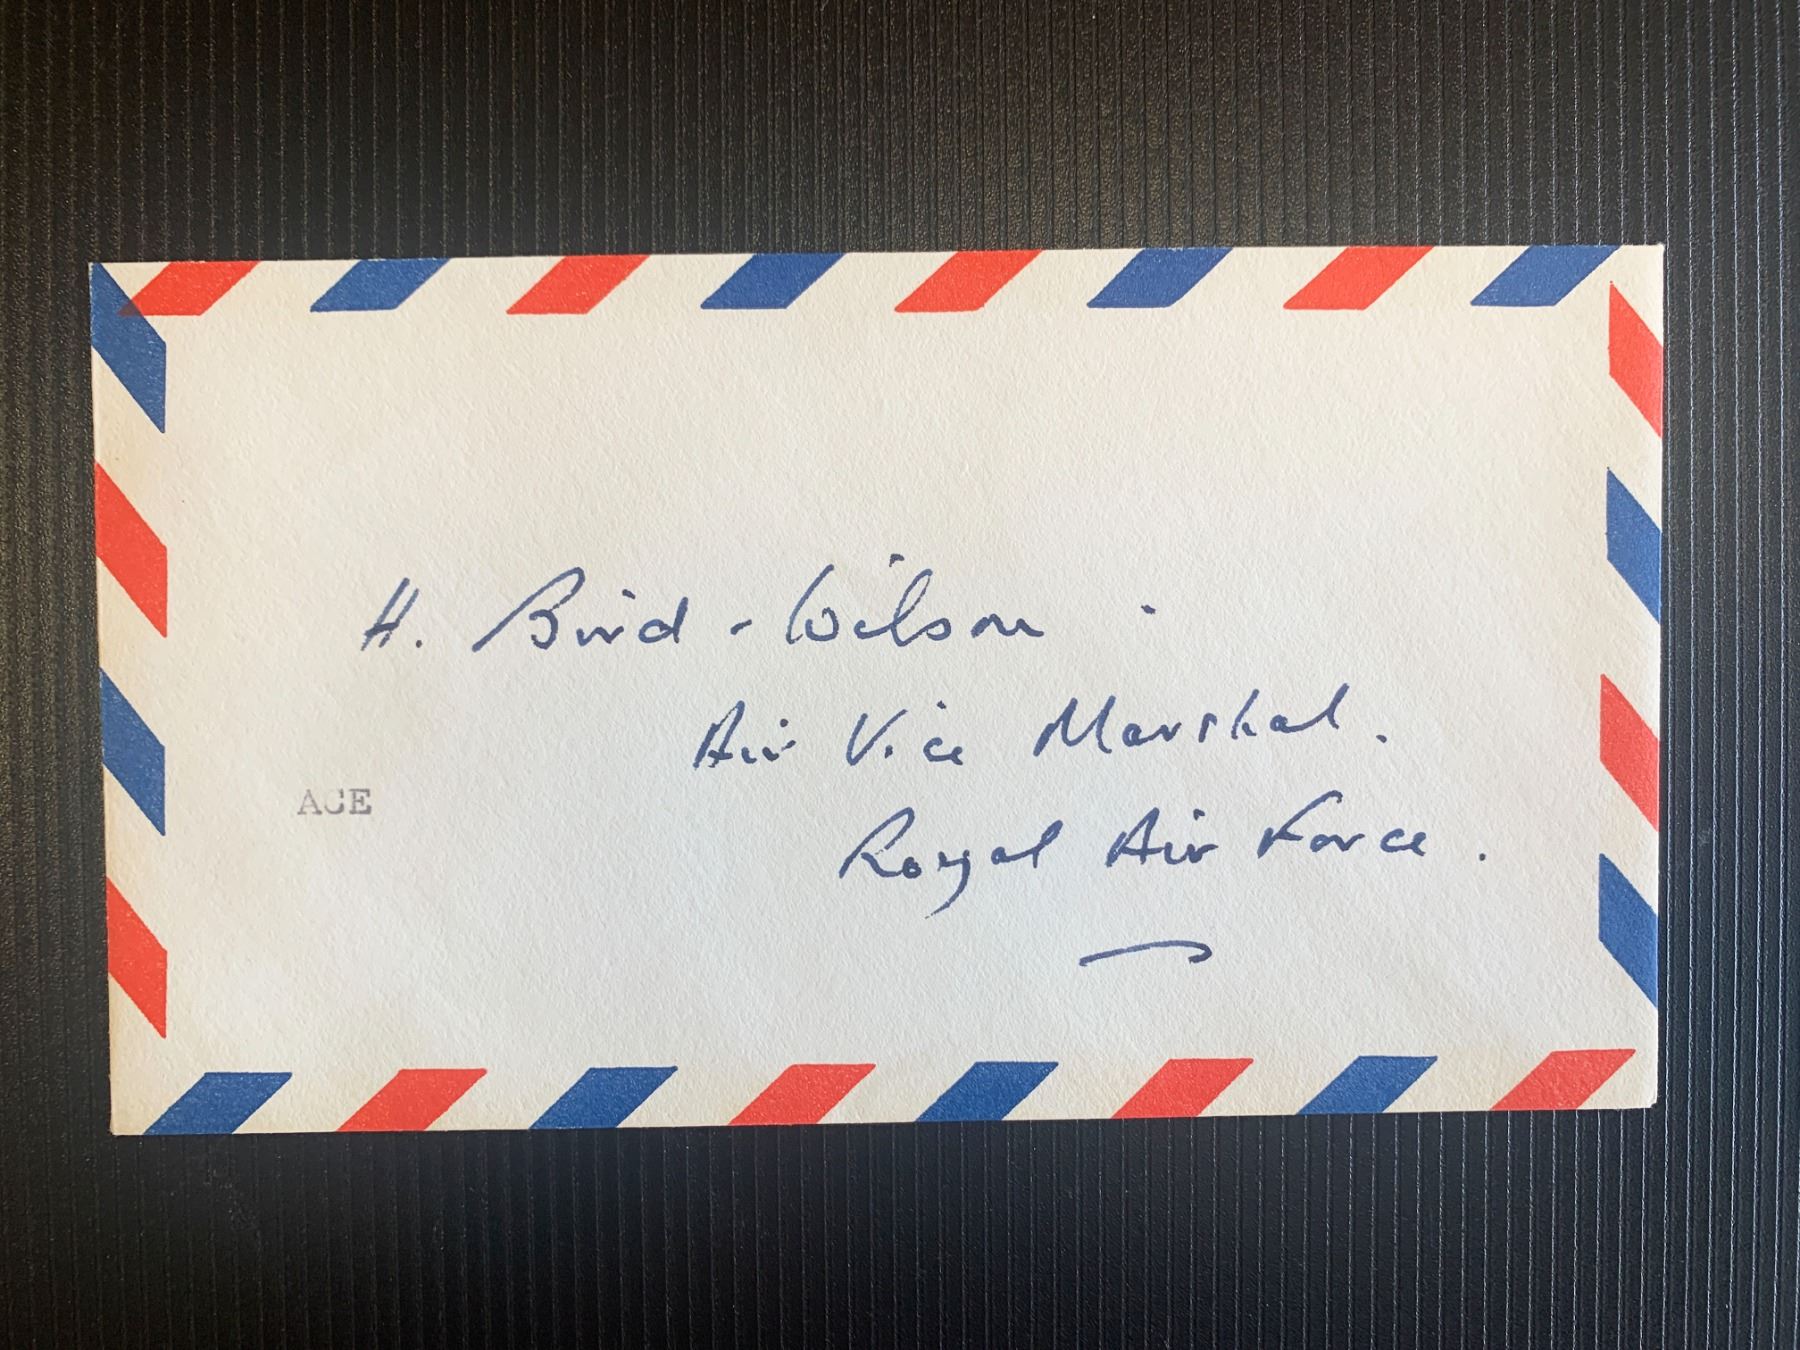 H. Bird - Wilson
Air Vice Marshal.
ACE
Royal Air Force.